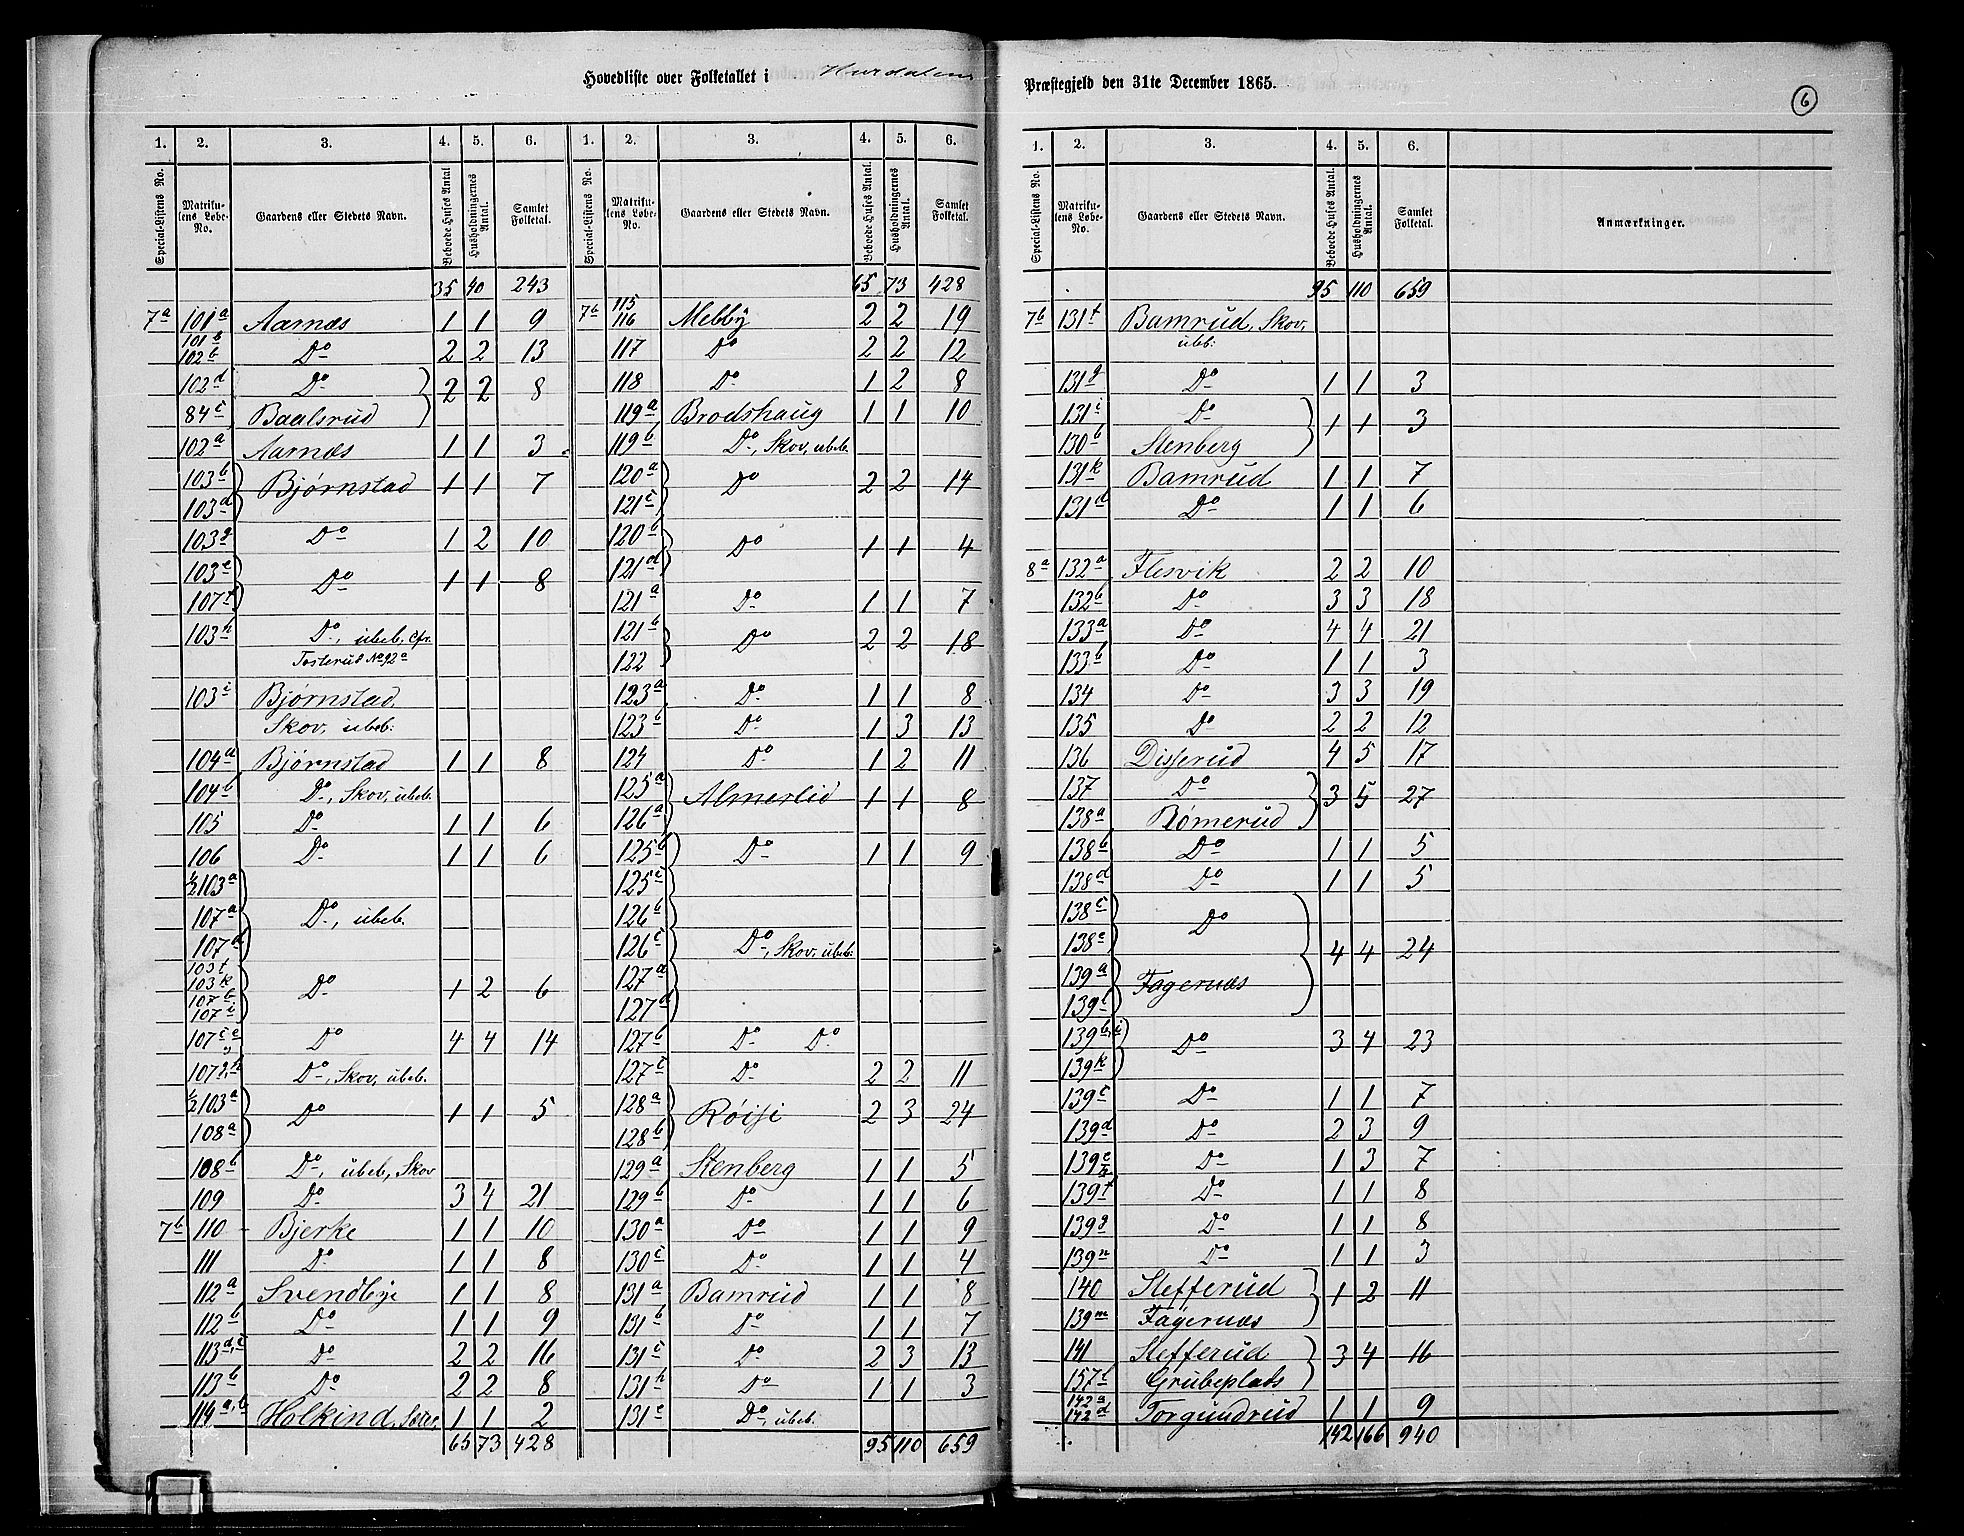 Hovedliste over Folketallet i Hurdalens Præstegjeld den 31te December 1865.
6
1. 2. 3. 4. 5. 6.
Special-Listens No. Matrikulens Løbe-No. Gaardens eller Stedets Navn. Beboede Huses Antal. Husholdningernes Antal. Samlet Folketal.
35 40 243
7a 101a Aarnæs 1 1 9
101b 102b Do 2 2 13
102d Do } 2 2 8
84c Baalsrud
102a Aarnæs 1 1 3
103b Bjørnstad 1 1 7
103d
103g Do 1 2 10
103e Do 1 1 8
107f
103h Do, ubeb. Cfr.
Tosterud No 92a
103i Bjørnstad,
Skov, ubeb:
104a Bjørnstad 1 1 8
104b Do, Skov, ubeb.
105 Do 1 1 6
106 Do 1 1 6
½103a
107a Do, ubeb.
107d
103f
103k Do 1 2 6
107b
107i
107c e Do 4 4 14
107g,h Do, Skov, ubeb.
½103a Do 1 1 5
108a
108b Do, ubeb, Skov
109 Do 3 4 21
7b 110 Bjerke 1 1 10
111 Do 1 1 8
112a Svendbye 1 1 8
112b Do 1 1 9
113a,c Do 2 2 16
113b Do 2 2 8
114a,b Holkind, Sæter, 1 1 2
65 73 428
1. 2. 3. 4. 5. 6.
Special-Listens No. Matrikulens Løbe-No. Gaardens eller Stedets Navn. Beboede Huses Antal. Husholdningernes Antal. Samlet Folketal.
65 73 428
7b 115 116 Mebby 2 2 19
117 Do 2 2 12
118 Do 1 2 8
119a Brodshaug 1 1 10
119b Do, Skov, ubeb.
120a Do 2 2 14
121c
120b Do 1 1 4
121d
121a Do 1 1 7
121b Do 2 2 18
122
123a Do 1 1 8
123b Do 1 3 13
124 Do 1 2 11
125a Almerlid 1 1 8
126a
125b Do 1 1 9
125c
126b
126c Do, Skov, ubeb:
127a
127d
127b Do Do
127c Do 2 2 11
128a Røisi 2 3 24
128b
129a Stenberg 1 1 5
129b Do 1 1 6
130a Do 1 1 9
130c Do 1 1 4
131a Bamrud 1 1 8
131b Do 1 1 7
131c Do 2 3 13
131h Do 1 1 3
131e Do, ubeb.
95 110 659
1. 2. 3. 4. 5. 6.
Special-Listens No. Matrikulens Løbe-No. Gaardens eller Stedets Navn. Beboede Huses Antal. Husholdningernes Antal. Samlet Folketal. Anmærkninger.
95 110 659
7b 131f Bamrud, Skov,
ubeb:
131g Do 1 1 3
131i Do } 1 1 3
130b Stenberg
131k Bamrud 1 1 7
131d Do 1 1 6
8a 132a Flesvik 2 2 10
132b Do 3 3 18
133a Do 4 4 21
133b Do 1 1 3
134 Do 3 3 19
135 Do 2 2 12
136 Disserud 4 5 17
137 Do } 3 5 27
138a Rømerud
138b Do 1 1 5
138d Do 1 1 5
138c Do
138e } 4 4 24
139a Fagernæs
139l
139b,i Do 3 4 23
139k
139c Do 1 1 7
139d Do 2 3 9
139e Do 1 3 7
139f Do 1 1 8
139g Do 1 1 8
139n Do 1 1 3
140 Stefferud } 1 2 11
139m Fagernæs
141 Stefferud } 3 4 16
157b Grubeplads
142a 142d Torgundrud 1 1 9
142 166 940